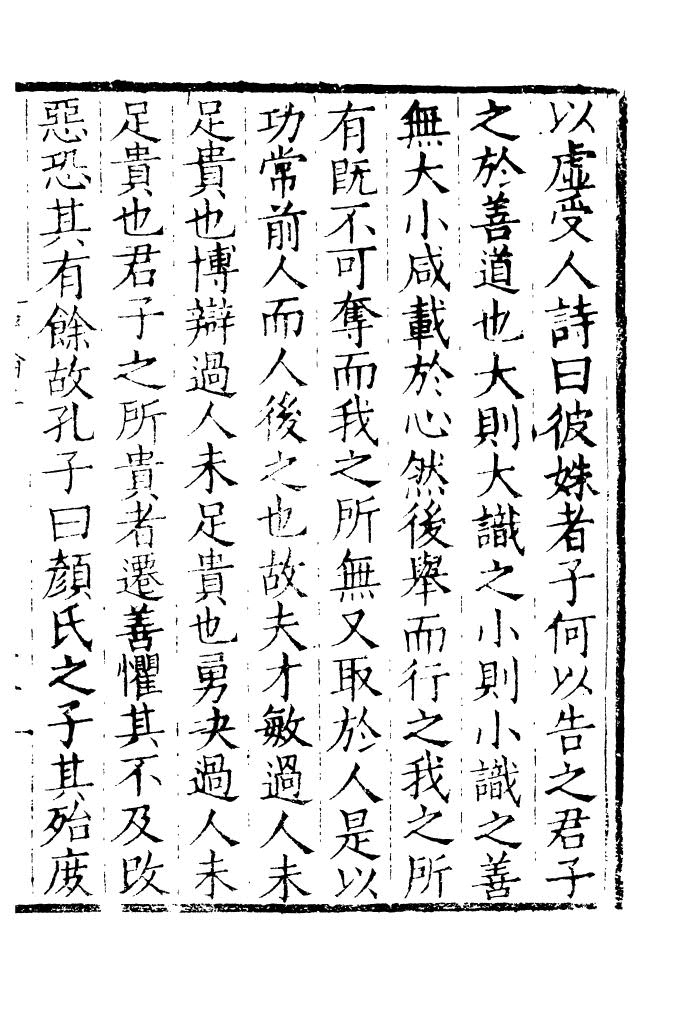 以虛受人詩曰彼姝者子何以告之君子
之於善道也大則大識之小則小識之善
無大小咸載於心然後舉而行之我之所
有既不可奪而我之所無又取於人是以
功常前人而人後之也故夫才敏過人未
足貴也博辯過人未足貴也勇决過人未
足貴也君子之所貴者遷善懼其不及改
惡恐其有餘故孔子曰顏氏之子其殆庶